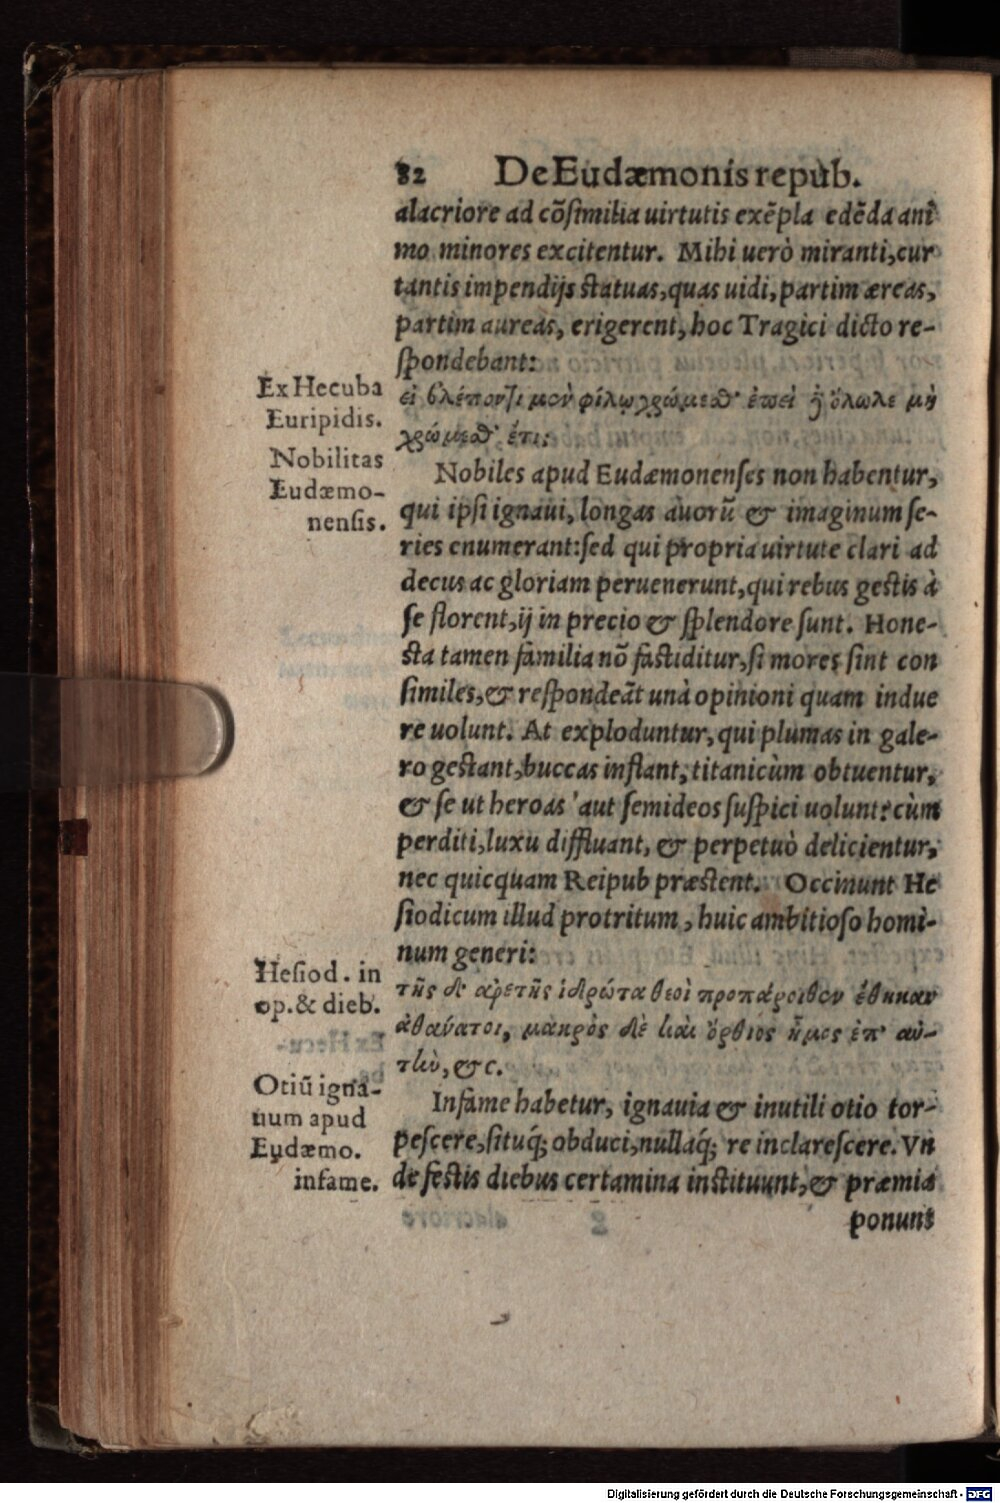 82 De Eudæmonis repub.
alacriore ad cõsimilia uirtutis exẽpla edẽda ani
mo minores excitentur. Mihi uerò miranti, cur
tantis impendijs statuas, quas uidi, partim æreas,
partim aureas, erigerent, hoc Tragici dicto re-
spondebant:
Ex Hecuba
Euripidis.
εἰ βλέποντι μὲν φίλῳ χρώμεσθ' ἐπεὶ δ' ὄλωλε μὴ
χρώμεσθ' ἔτι:
Nobilitas
Eudæmo-
nensis.
Nobiles apud Eudæmonenses non habentur,
qui ipsi ignaui, longas auorũ & imaginum se-
ries enumerant: sed qui propria uirtute clari ad
decus ac gloriam peruenerunt, qui rebus gestis à
se florent, ij in precio & splendore sunt. Hone-
sta tamen familia nõ fastiditur, si mores sint con
similes, & respondeãt unà opinioni quam indue
re uolunt. At exploduntur, qui plumas in gale-
ro gestant, buccas inflant, titanicùm obtuentur,
& se ut heroas aut semideos suspici uolunt: cùm
perditi, luxu diffluant, & perpetuò delicientur,
nec quicquam Reipub præstent. Occinunt He
siodicum illud protritum, huic ambitioso homi-
num generi:
Hesiod. in
op. & dieb.
τῆς δ' ἀρετῆς ἱδρῶτα θεοὶ προπάροιθεν ἔθηκαν
ἀθανατοι, μακρὸς δὲ καὶ ὄρθιος οἶμος ἐπ' αὐ-
τὴν, &c.
Otiũ igna-
uum apud
Eudæmo.
infame.
Infame habetur, ignauia & inutili otio tor-
pescere, situq́; obduci, nullaq́; re inclarescere. Vn
de festis diebus certamina instituunt, & præmia
ponunt
Digitalisierung gefördert durch die Deutsche Forschungsgemeinschaft - DFG